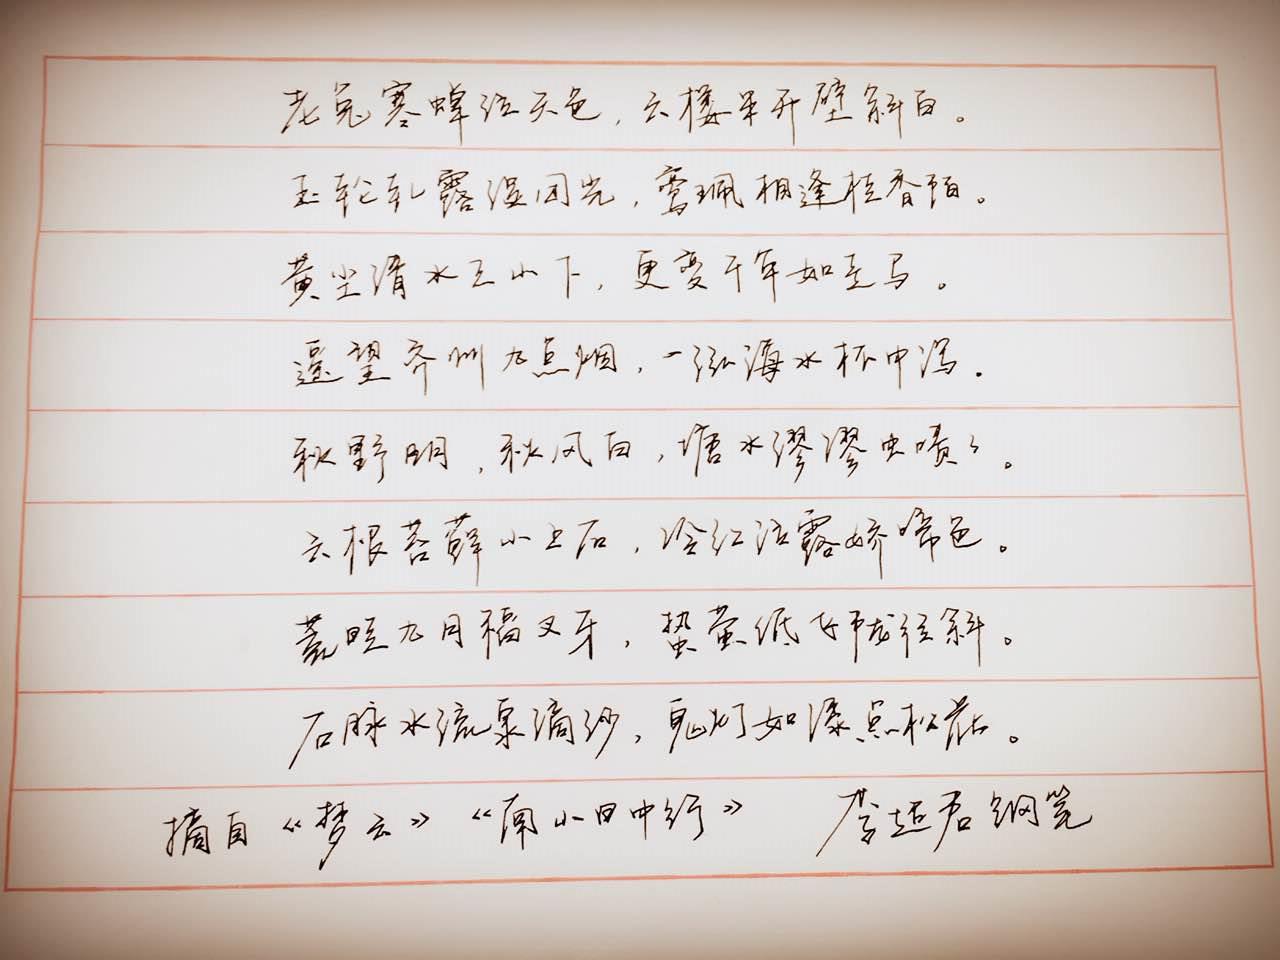 老兔寒蟾泣天色，云楼半开壁斜白。
玉轮轧露湿团光，鸾珮相逢桂香陌。
黄尘清水三山下，更变千年如走马。
遥望齐州九点烟，一泓海水杯中泻。
秋野明，秋风白，塘水漻漻虫啧々。
云根苔藓山上石，冷红泣露娇啼色。
荒畦九月稻叉牙，蛰萤低飞陇径斜。
石脉水流泉滴沙，鬼灯如漆点松花。
摘自《梦云》《南山田中行》 李超君钢笔